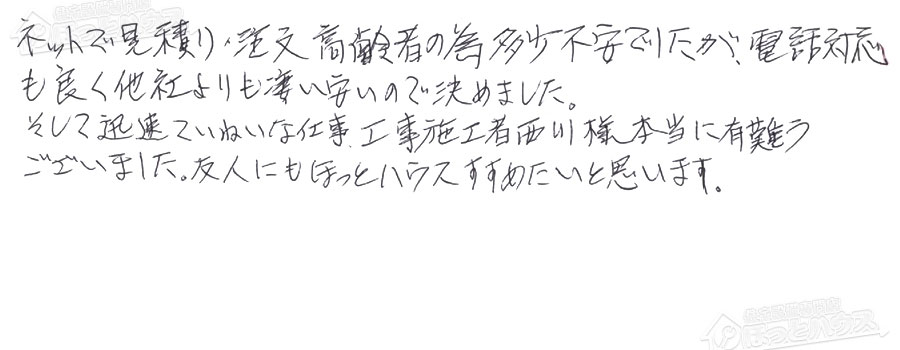 ネットで見積り・注文 高齢者の為 多少不安でしたが、電話対応
も良く他社よりも凄い安いので決めました。
そして迅速ていねいな仕事、工事施工者西川様本当に有難う
ございました。友人にもほっとハウスすすめたいと思います。
ほっとハウス